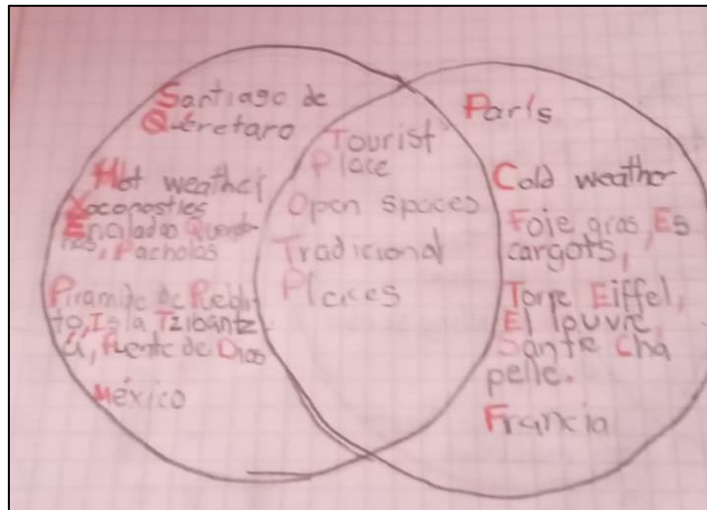 Santiago de
Querétaro
Hot weather
Xoconostles
Enchiladas Quereta-
nas, Pacholas
Piramide de Pueblit-
to, Isla Tzibantz
á, Puente de Dios
México
Tourist
Place
Open spaces
Tradicional
Places
París
Cold weather
Foie gras, Es
cargots,
Torre Eiffel,
El louvre,
Sante Cha
pelle.
Francia